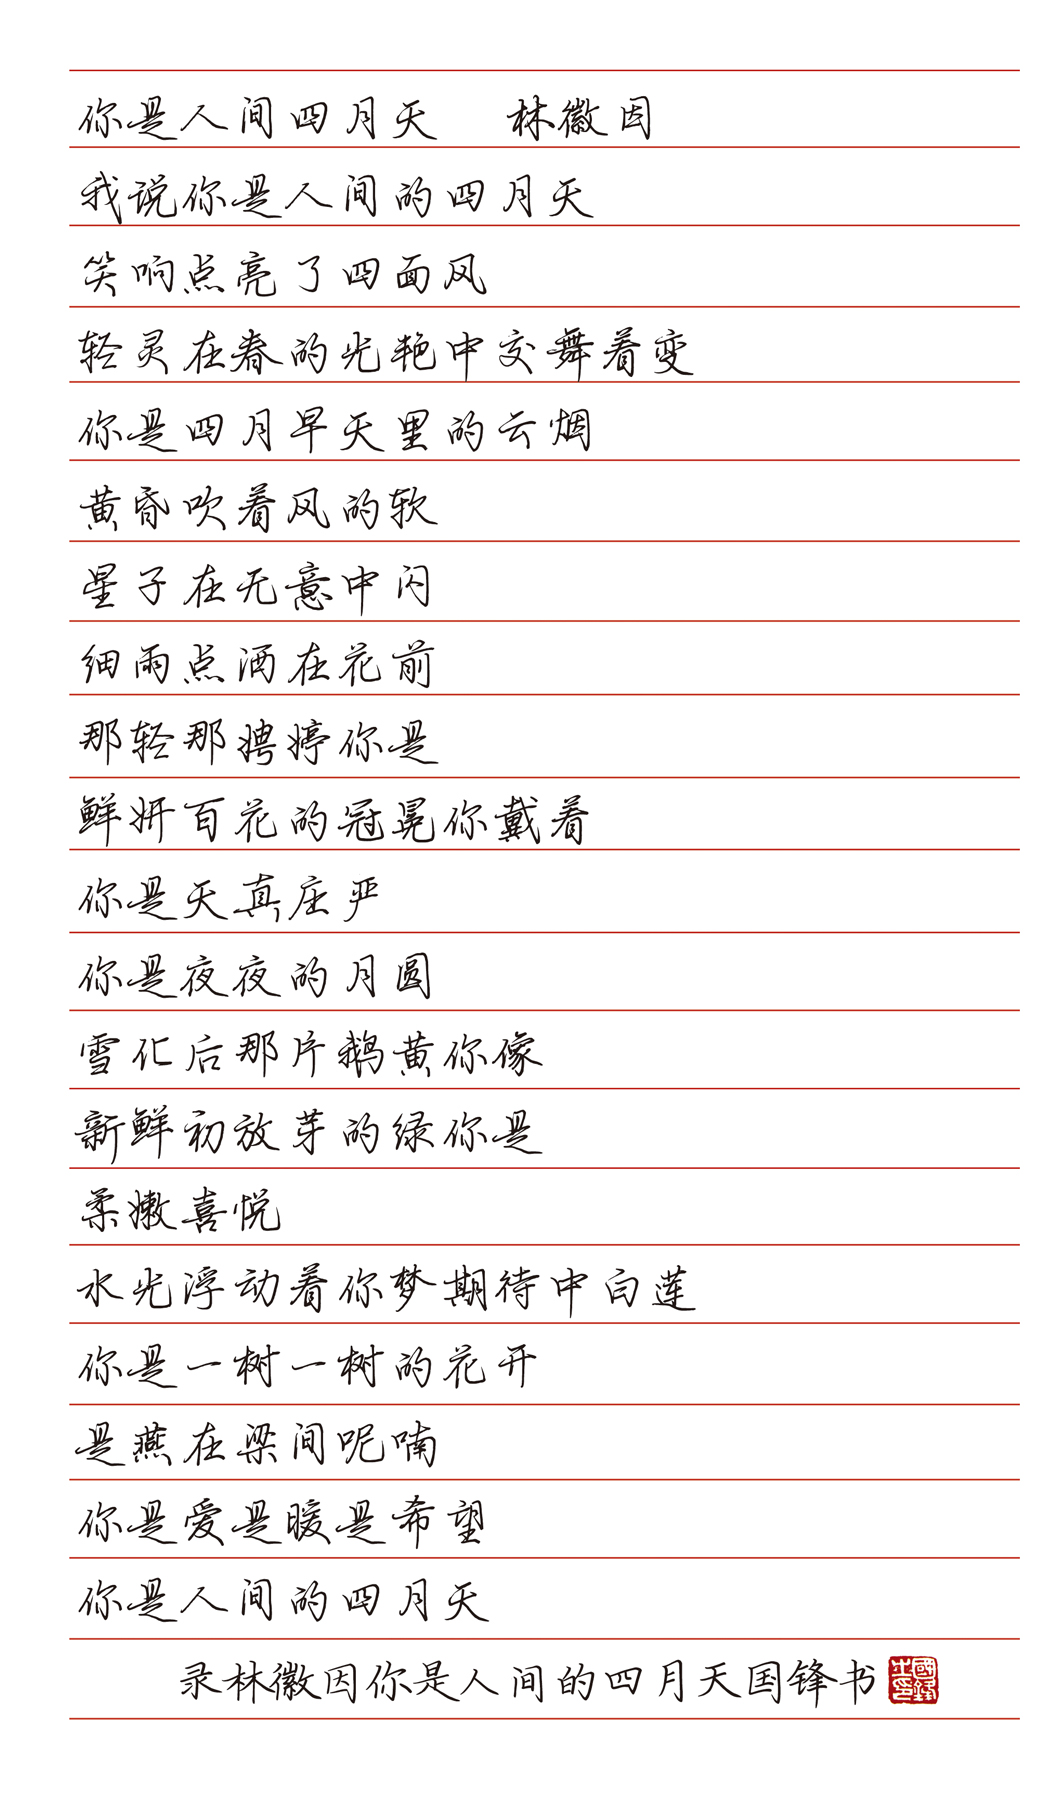 你是人间四月天 林徽因
我说你是人间的四月天
笑响点亮了四面风
轻灵在春的光艳中交舞着变
你是四月早天里的云烟
黄昏吹着风的软
星子在无意中闪
细雨点洒在花前
那轻那娉婷你是
鲜妍百花的冠冕你戴着
你是天真庄严
你是夜夜的月圆
雪化后那片鹅黄你像
新鲜初放芽的绿你是
柔嫩喜悦
水光浮动着你梦期待中白莲
你是一树一树的花开
是燕在梁间呢喃
你是爱是暖是希望
你是人间的四月天
录林徽因你是人间的四月天国锋书
國鋒之印